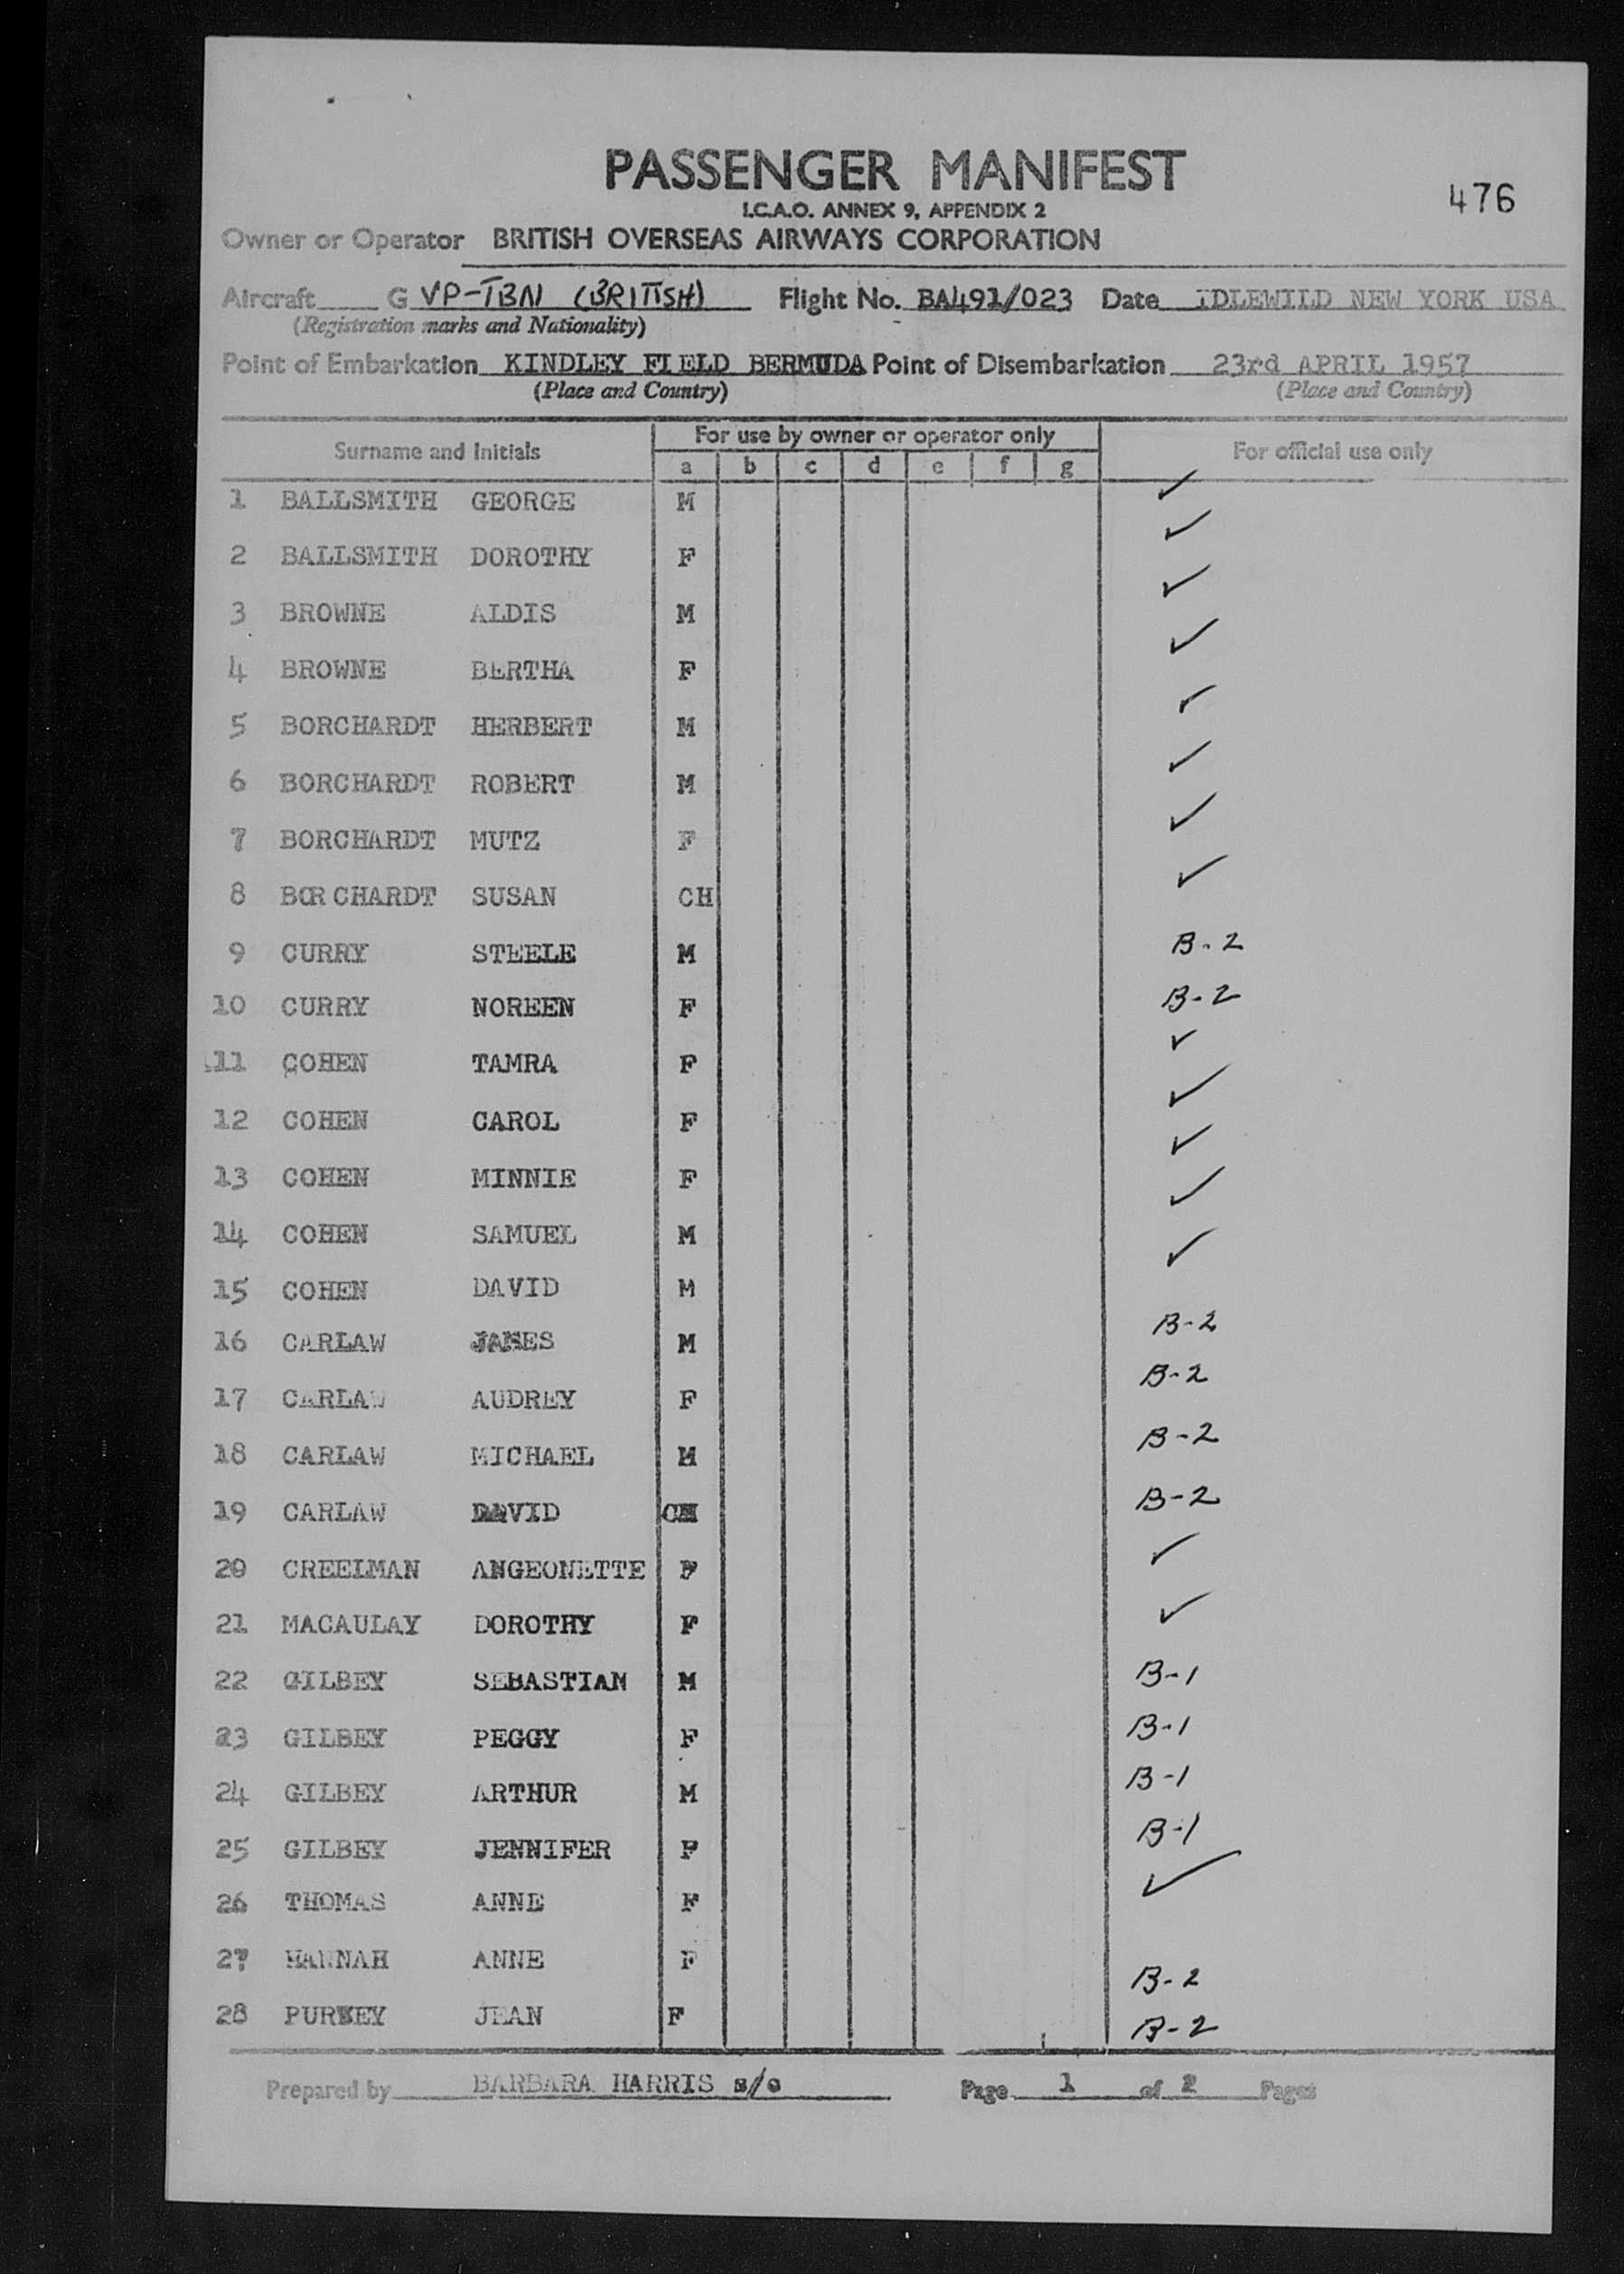 PASSENGER MANIFEST
476
I.C.A.O. ANNEX 9, APPENDIX 2
Owner or Operator BRITISH OVERSEAS AIRWAYS CORPORATION
Aircraft G VP-TBN (BRITISH) Flight No. BA491/023 Date IDLEWILD NEW YORK USA
(Registration marks and Nationality)
Point of Embarkation KINDLEY FIELD BERMUDA Point of Disembarkation 23rd APRIL 1957
(Place and Country) (Place and Country)
Surname and Initials For use by owner or operator only For official use only
a b c d e f g
1 BALLSMITH GEORGE M ✓
2 BALLSMITH DOROTHY F ✓
3 BROWNE ALDIS M ✓
4 BROWNE BERTHA F ✓
5 BORCHARDT HERBERT M ✓
6 BORCHARDT ROBERT M ✓
7 BORCHARDT MUTZ F ✓
8 BORCHARDT SUSAN CH ✓
9 CURRY STEELE M B-2
10 CURRY NOREEN F B-2
11 COHEN TAMRA F ✓
12 COHEN CAROL F ✓
13 COHEN MINNIE F ✓
14 COHEN SAMUEL M ✓
15 COHEN DAVID M ✓
16 CARLAW JAMES M B-2
17 CARLAW AUDREY F B-2
18 CARLAW MICHAEL M B-2
19 CARLAW DAVID CH B-2
20 CREELMAN ANGEONETTE F ✓
21 MACAULAY DOROTHY F ✓
22 GILBEY SEBASTIAN M B-1
23 GILBEY PEGGY F B-1
24 GILBEY ARTHUR M B-1
25 GILBEY JENNIFER F B-1
26 THOMAS ANNE F ✓
27 HANNAH ANNE F B-2
28 JEAN F B-2
Prepared by BARBARA HARRIS s/s Page 1 of 2 Pages